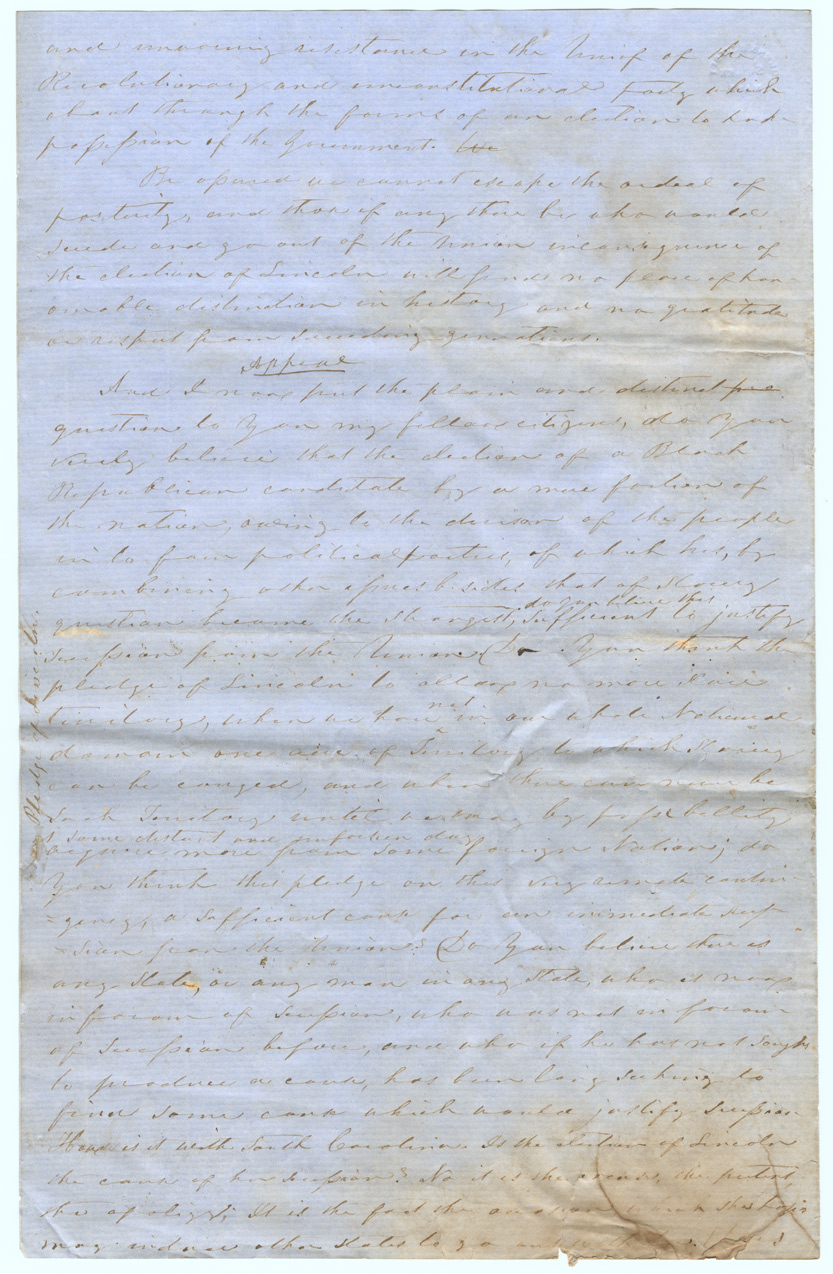 and unwavering resistance in the Union of the
Revolutionary and unconstitutional party which
about through the forms of an election to take
possession of the Government.
Be assured we cannot escape the ordeal of
posterity, and those if any there be who would
secede and go out of the Union in consequence of
the election of Lincoln will find no place of hon-
orable distinction in history and no gratitude
or respect from succeeding generations.
Appeal
And I now put the plain and distinct
question to You my fellow citizens, do You
verily believe that the election of a Black
Republican candidate by a mere faction of
the nation, owing to the division of the people
in to four political parties, of which his, by
combining other issues besides that of Slavery
do you believe this
question became the strongest, sufficient to justify
secession from the Union? Do You think the
pledge of Lincoln to allow no more Slave
territory, when we have not in our whole National
domain one acre of Territory to which Slavery
can be carried, and when there can never be
Such Territory until we may by possibility
at some distant and unforseen day
acquire more from some foreign Nation; do
You think this pledge on this very remote contin-
=gency, a sufficient cause for an immediate seces-
=sion from the Union? Do You believe there is
any State, or any man in any State, who is now
in favour of Secession, who was not in favour
of Secession before, and who if he has not sought
to produce a cause, has been long seeking to
find some cause which would justify Secession
How is it with South Carolina. Is the election of Lincoln
the cause of her Secession? No it is the excuse, the pretext
the apology; It is the fact the occasion which she hopes
may induce other States to go out
Pledge of Lincoln.